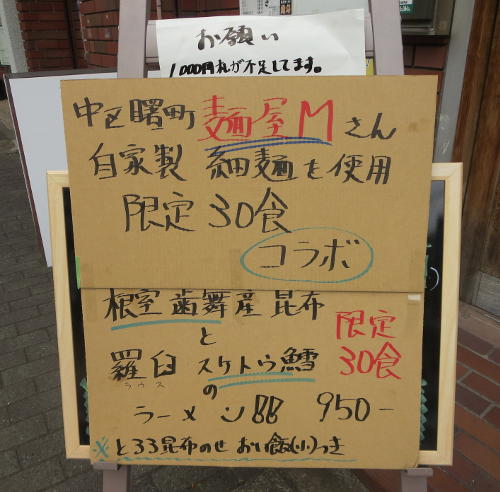 お願い
1,000円札が不足してます。
中区曙町 麺屋M さん
自家製 細麺を使用
限定 30食
コラボ
根室歯舞産昆布
と
限定
30食
羅臼 スケトウ鱈
ラウス
の
ラーメン!! 950-
※とろろ昆布のせ おい飯(小)つき